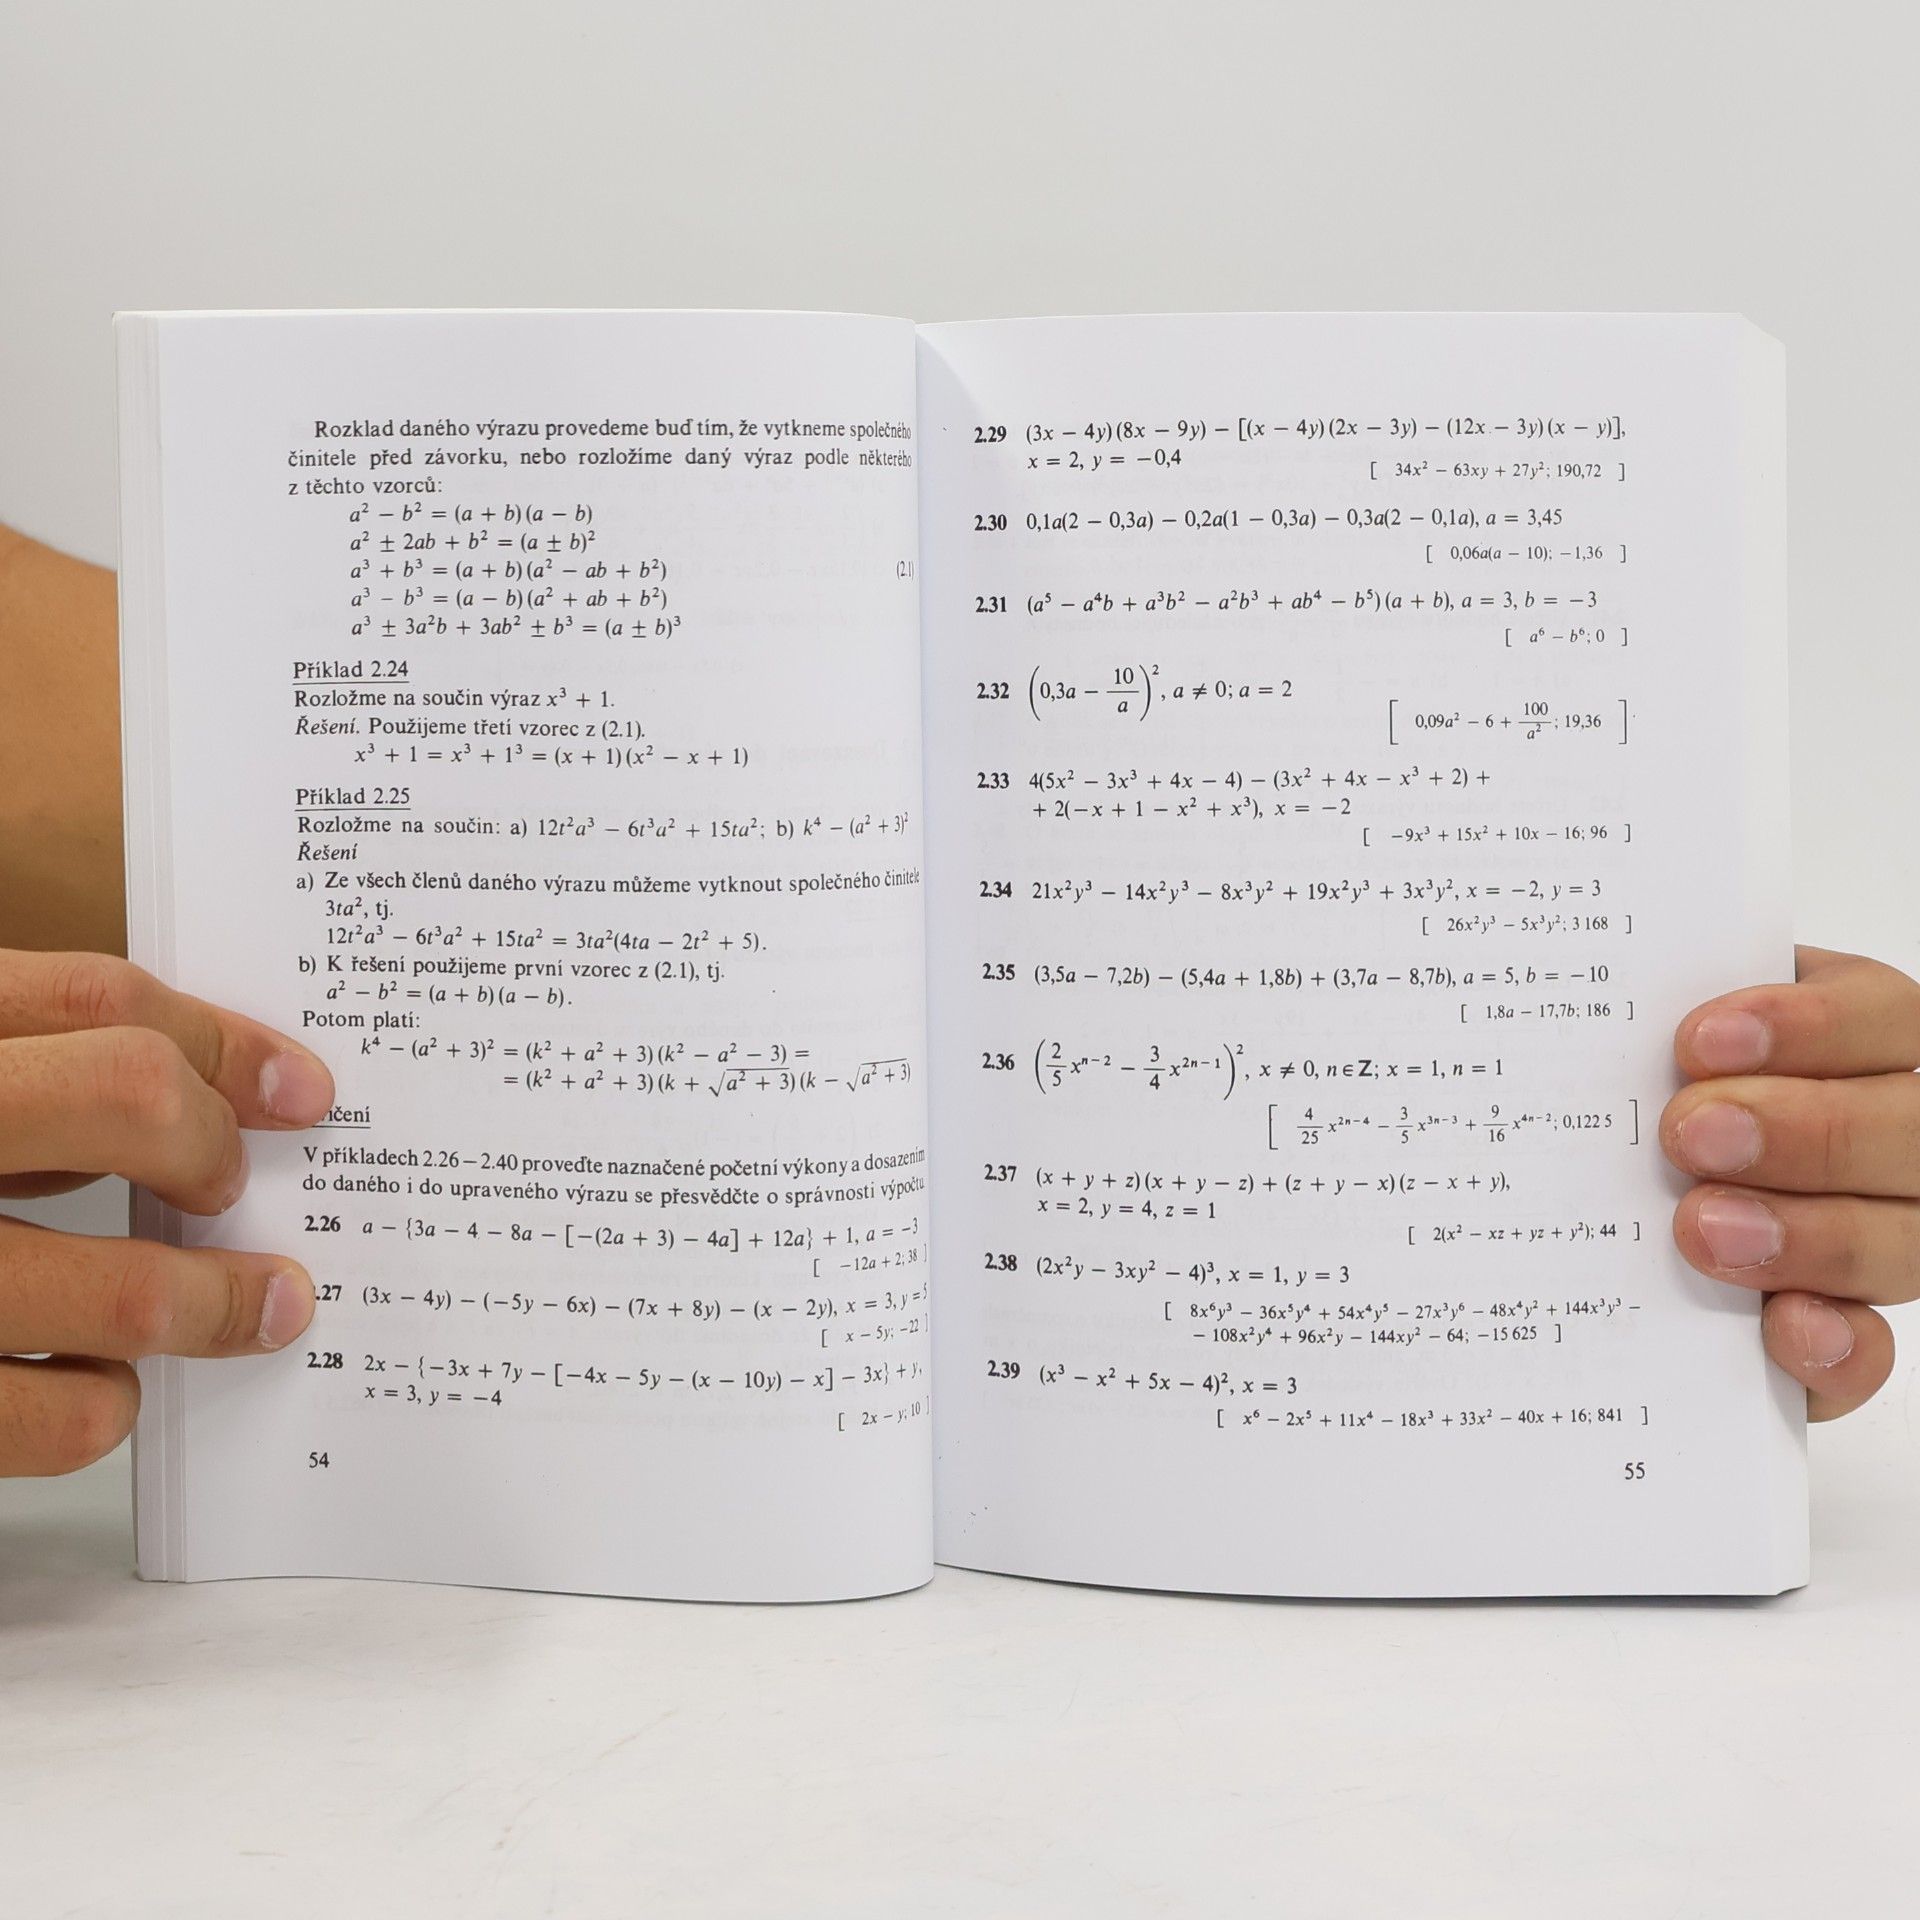 Rozklad daného výrazu provedeme buď tím, že vytkneme společného
činitele před závorku, nebo rozložíme daný výraz podle některého
z těchto vzorců:
a² − b² = (a + b)(a − b)
a² ± 2ab + b² = (a ± b)²
a³ + b³ = (a + b)(a² − ab + b²) (2.1)
a³ − b³ = (a − b)(a² + ab + b²)
a³ ± 3a²b + 3ab² ± b³ = (a ± b)³
Příklad 2.24
Rozložme na součin výraz x³ + 1.
Řešení. Použijeme třetí vzorec z (2.1).
x³ + 1 = x³ + 1³ = (x + 1)(x² − x + 1)
Příklad 2.25
Rozložme na součin: a) 12t²a³ − 6t³a² + 15ta²; b) k⁴ − (a² + 3)²
Řešení
a) Ze všech členů daného výrazu můžeme vytknout společného činitele
3ta², tj.
12t²a³ − 6t³a² + 15ta² = 3ta²(4ta − 2t² + 5).
b) K řešení použijeme první vzorec z (2.1), tj.
a² − b² = (a + b)(a − b).
Potom platí:
k⁴ − (a² + 3)² = (k² + a² + 3)(k² − a² − 3) =
= (k² + a² + 3)(k + √(a² + 3))(k − √(a² + 3))
ičení
V příkladech 2.26–2.40 proveďte naznačené početní výkony a dosazením
do daného i do upraveného výrazu se přesvědčte o správnosti výpočtu
2.26 a − {3a − 4 − 8a − [−(2a + 3) − 4a] + 12a} + 1, a = −3
[ −12a + 2; 38 ]
.27 (3x − 4y) − (−5y − 6x) − (7x + 8y) − (x − 2y), x = 3, y = 5
[ x − 5y; −22 ]
2.28 2x − {−3x + 7y − [−4x − 5y − (x − 10y) − x] − 3x} + y,
x = 3, y = −4
[ 2x − y; 10 ]
54
2.29 (3x − 4y)(8x − 9y) − [(x − 4y)(2x − 3y) − (12x − 3y)(x − y)],
x = 2, y = −0,4
[ 34x² − 63xy + 27y²; 190,72 ]
2.30 0,1a(2 − 0,3a) − 0,2a(1 − 0,3a) − 0,3a(2 − 0,1a), a = 3,45
[ 0,06a(a − 10); −1,36 ]
2.31 (a⁵ − a⁴b + a³b² − a²b³ + ab⁴ − b⁵)(a + b), a = 3, b = −3
[ a⁶ − b⁶; 0 ]
2.32 (0,3a − 10/a)², a ≠ 0; a = 2
[ 0,09a² − 6 + 100/a²; 19,36 ]
2.33 4(5x² − 3x³ + 4x − 4) − (3x² + 4x − x³ + 2) +
+ 2(−x + 1 − x² + x³), x = −2
[ −9x³ + 15x² + 10x − 16; 96 ]
2.34 21x²y³ − 14x²y³ − 8x³y² + 19x²y³ + 3x³y², x = −2, y = 3
[ 26x²y³ − 5x³y²; 3 168 ]
2.35 (3,5a − 7,2b) − (5,4a + 1,8b) + (3,7a − 8,7b), a = 5, b = −10
[ 1,8a − 17,7b; 186 ]
2.36 (2/5 xⁿ⁻² − 3/4 x²ⁿ⁻¹)², x ≠ 0, n∈Z; x = 1, n = 1
[ 4/25 x²ⁿ⁻⁴ − 3/5 x³ⁿ⁻³ + 9/16 x⁴ⁿ⁻²; 0,122 5 ]
2.37 (x + y + z)(x + y − z) + (z + y − x)(z − x + y),
x = 2, y = 4, z = 1
[ 2(x² − xz + yz + y²); 44 ]
2.38 (2x²y − 3xy² − 4)³, x = 1, y = 3
[ 8x⁶y³ − 36x⁵y⁴ + 54x⁴y⁵ − 27x³y⁶ − 48x⁴y² + 144x³y³ −
− 108x²y⁴ + 96x²y − 144xy² − 64; −15 625 ]
2.39 (x³ − x² + 5x − 4)², x = 3
[ x⁶ − 2x⁵ + 11x⁴ − 18x³ + 33x² − 40x + 16; 841 ]
55